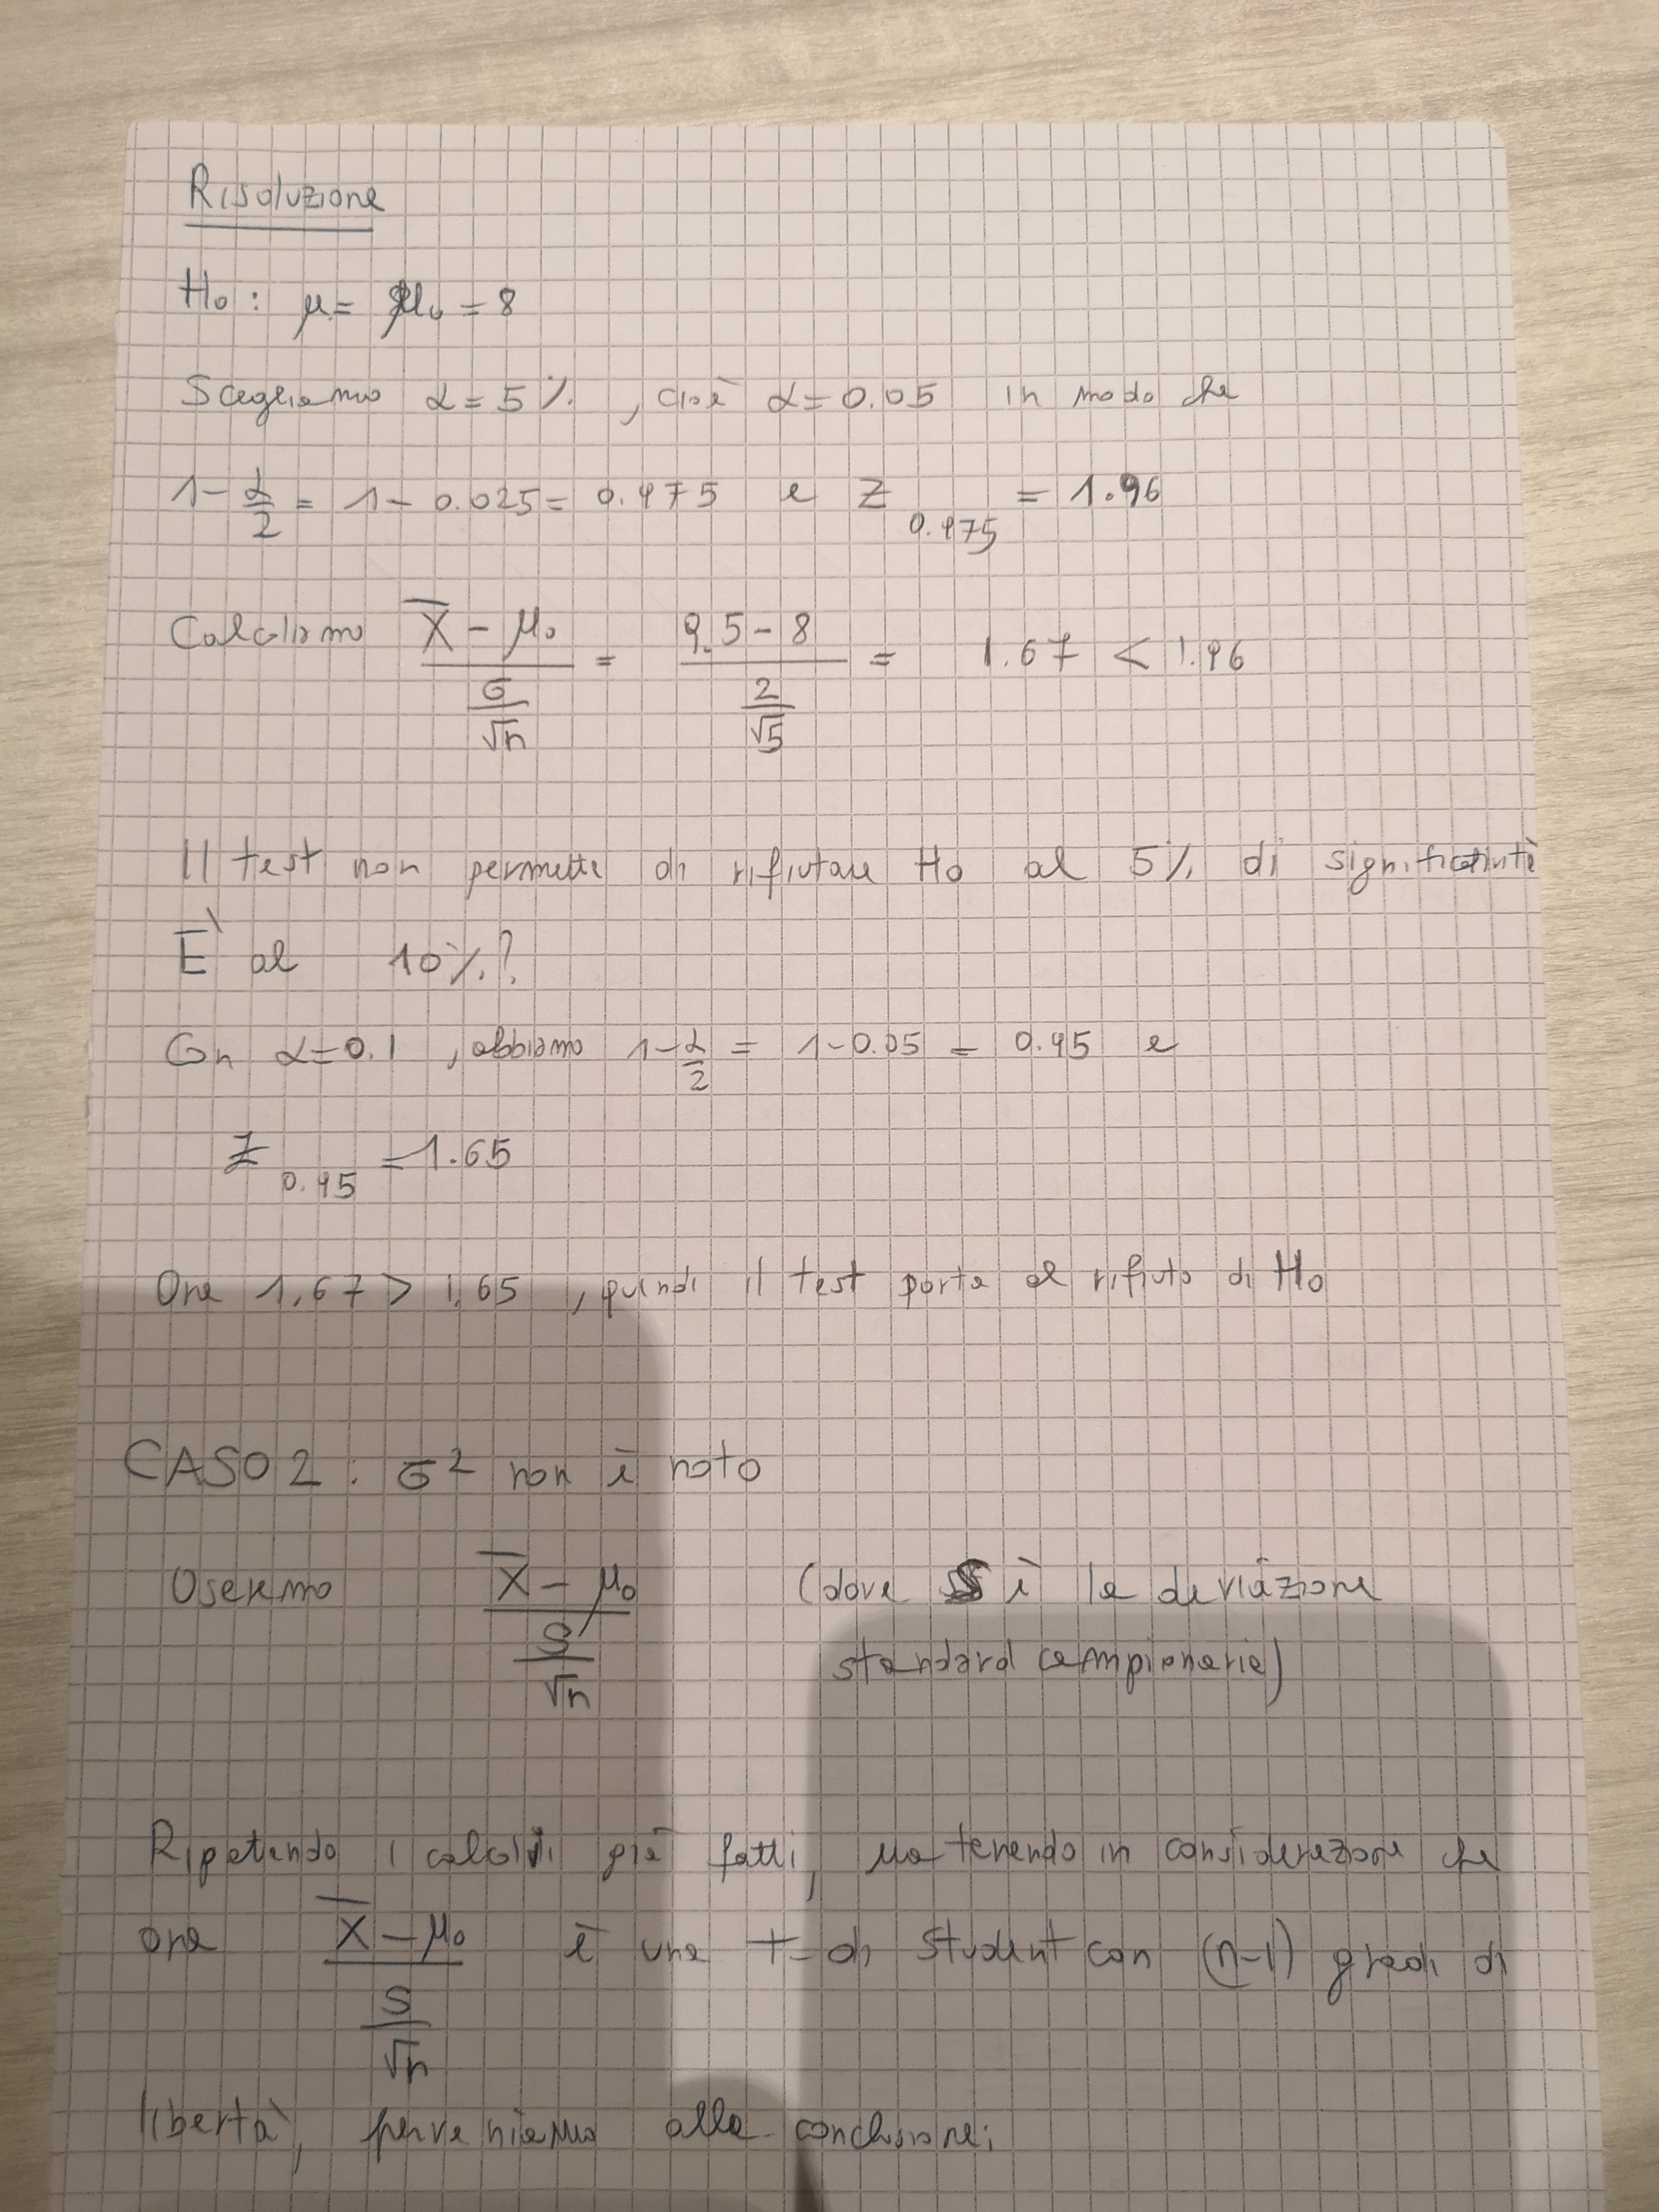 Risoluzione
H₀ : μ = μ₀ = 8
Scegliamo α = 5 % , cioè α = 0.05 in modo che
1 - α/2 = 1 - 0.025 = 0.975 e Z_0.975 = 1.96
Calcoliamo (X̄ - μ₀)/(σ/√n) = (9.5 - 8)/(2/√5) = 1.67 < 1.96
Il test non permette di rifiutare H₀ al 5 % di significatività
È al 10 % ?
Con α = 0.1 , abbiamo 1 - α/2 = 1 - 0.05 = 0.95 e
Z_0.95 = 1.65
Ora 1.67 > 1.65 , quindi il test porta al rifiuto di H₀
CASO 2 : σ² non è noto
Useremo (X̄ - μ₀)/(S/√n) (dove S è la deviazione
standard campionaria)
Ripetendo i calcoli già fatti, ma tenendo in considerazione che
ora (X̄ - μ₀)/(S/√n) è una t- di Student con (n-1) gradi di
libertà, perveniamo alla conclusione: